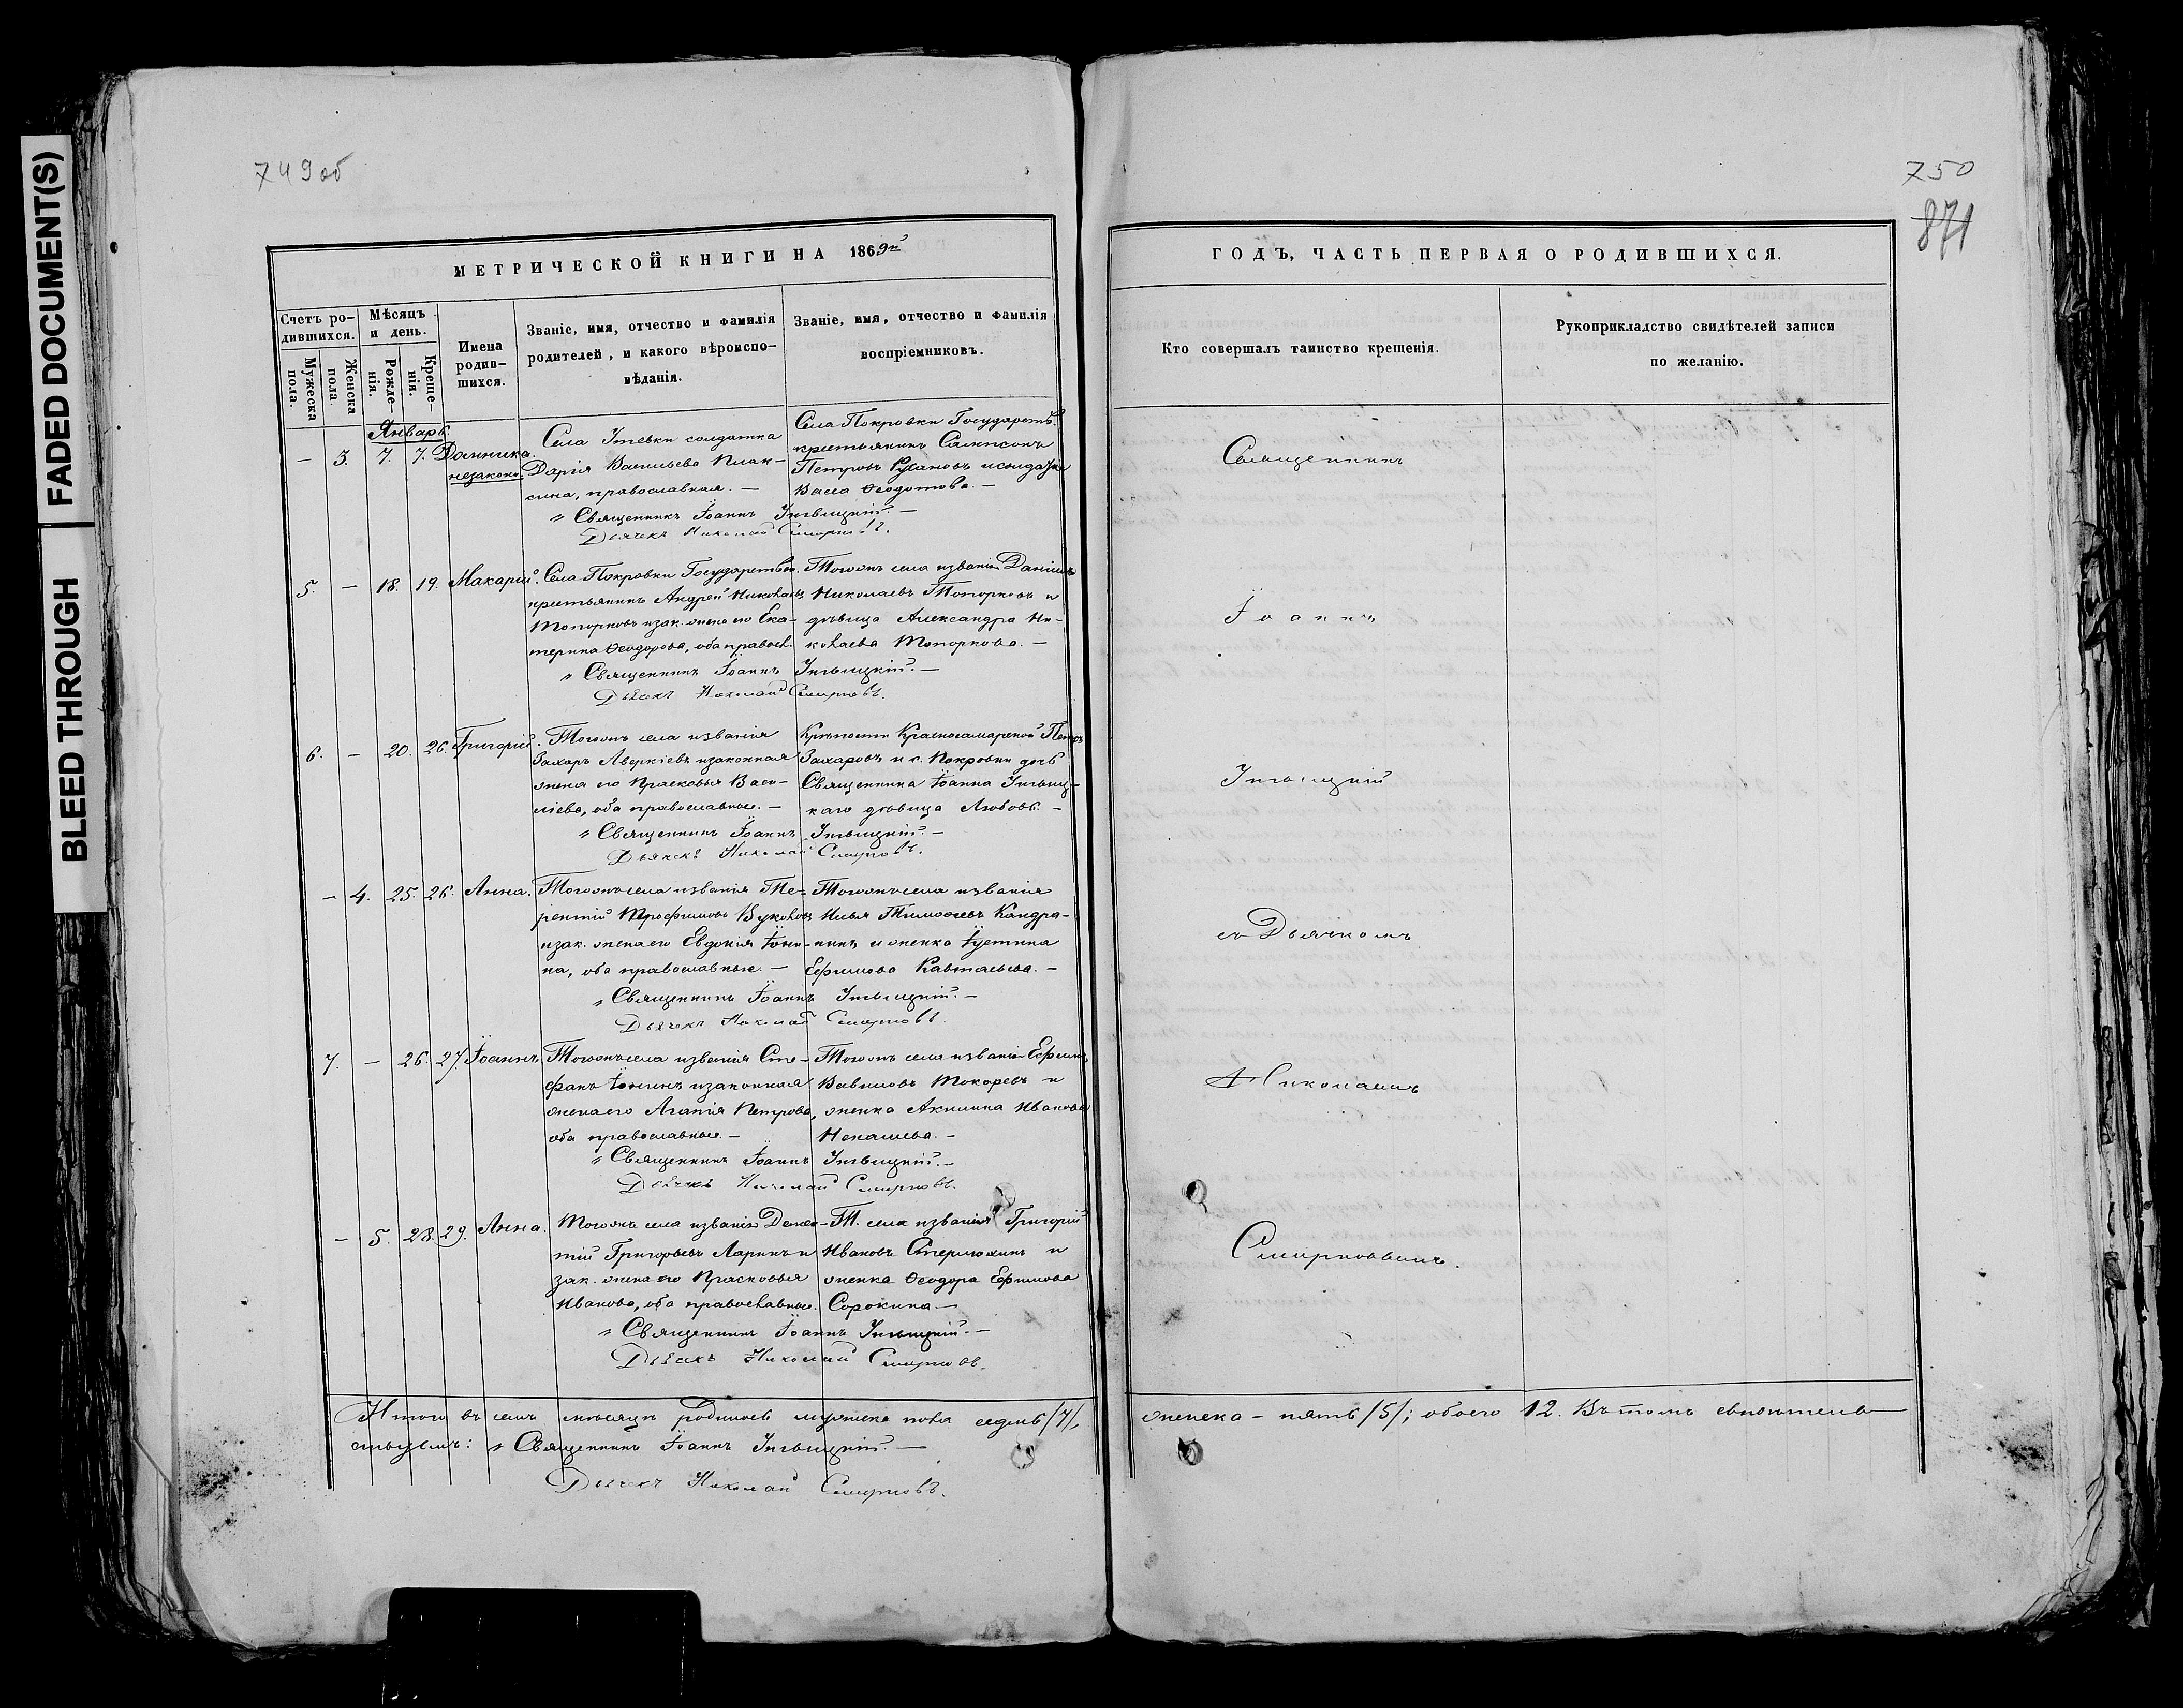 FADED DOCUMENT(S)
BLEED THROUGH
749 об
МЕТРИЧЕСКОЙ КНИГИ НА 1869й
Счетъ ро-
дившихся.
Мужеска
пола.
Женска
пола.
Мѣсяцъ
и день.
Рожде-
нія.
Креще-
нія.
Имена
родив-
шихся.
Званіе, имя, отчество и фамилія
родителей, и какого вѣроиспо-
вѣданія.
Званіе, имя, отчество и фамилія
воспріемниковъ.
Январь.
— 3. 7. 7. Домника.
незаконн.
Села Утевки солдатка
Дарія Васильева Плак-
сина, православная. —
Села Покровки Государств.
крестьянинъ Сампсонъ
Петровъ
Васса Ѳеодотова. —
" Священникъ Іоаннъ
Дьячекъ Николай Смирновъ.
5. — 18. 19. Макарій.
Села Покровки Государствен.
крестьянинъ Андрей Николаевъ
Топорковъ и зак. жена его Ека-
терина Ѳеодорова, оба правосл.
Тогожъ села и званія Даніилъ
Николаевъ Топорковъ и
дѣвица Александра Ни-
колаева Топоркова. —
" Священникъ Іоаннъ
Дьячекъ Николай Смирновъ.
6. — 20. 26. Григорій.
Тогожъ села и званія
Захаръ Аверкіевъ и законная
жена его Прасковья Васи-
ліева, оба православные. —
Крѣпости Красносамарской Петръ
Захаровъ и с. Покровки дочь
Священника Іоанна
каго дѣвица Любовь. —
" Священникъ Іоаннъ
Дьячекъ Николай Смирновъ.
— 4. 25. 26. Анна.
Тогожъ села и званія Те-
рентій Трофимовъ Вуколовъ
и зак. жена его Евдокія Іони-
на, оба православные. —
Тогожъ села и званія
Илья Тимоѳеевъ Кандра-
нинъ и женка Іустина
Ефимова
" Священникъ Іоаннъ
Дьячекъ Николай Смирновъ.
7. — 26. 27. Іоаннъ.
Тогожъ села и званія Сте-
фанъ Іонинъ и законная
жена его Агапія Петрова,
оба православные. —
Тогожъ села и званія Ефимъ
Вавиловъ Токаревъ и
женка Акилина Иванова
Ненашева. —
" Священникъ Іоаннъ
Дьячекъ Николай Смирновъ.
— 5. 28. 29. Анна.
Тогожъ села и званія
Григорьевъ Ларинъ и
зак. жена его Прасковья
Иванова, оба православные.
Т. села и званія Григорій
Ивановъ Стерлюхинъ и
женка Ѳеодора Ефимова
Сорокина —
" Священникъ Іоаннъ
Дьячекъ Николай Смирновъ.
Итого въ семъ мѣсяцѣ родилось мужеска пола седмь /7/,
" Священникъ Іоаннъ
Дьячекъ Николай Смирновъ.
750
871
ГОДЪ, ЧАСТЬ ПЕРВАЯ О РОДИВШИХСЯ.
Кто совершалъ таинство крещенія.
Рукоприкладство свидѣтелей записи
по желанію.
Священникъ
Іоаннъ
съ Дьячкомъ
Николаемъ
Смирновымъ.
женска — пять /5/; обоего 12. Въ томъ свидѣтель